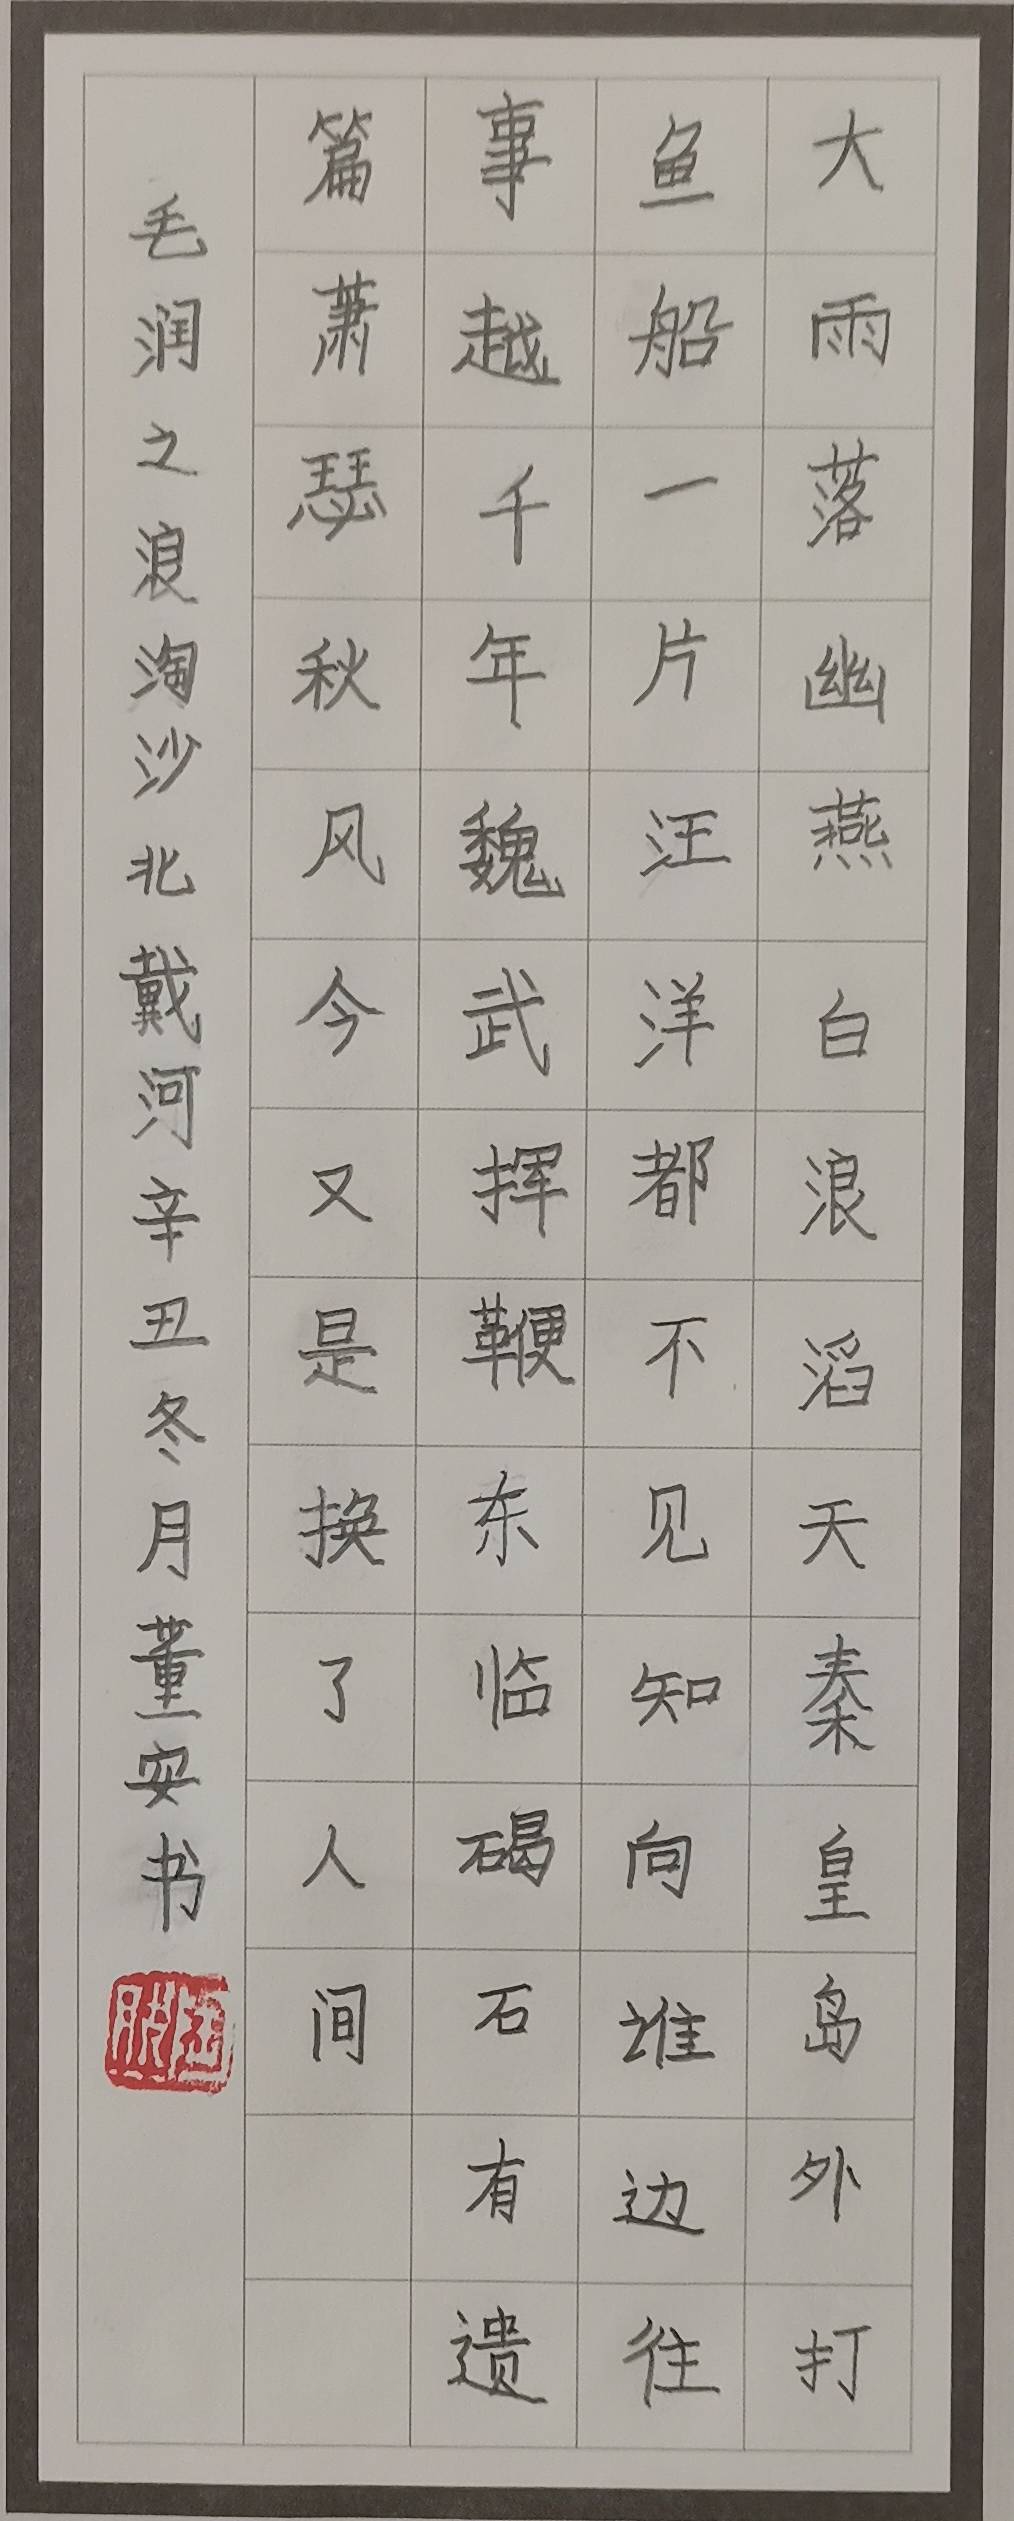 大雨落幽燕白浪滔天秦皇岛外打
鱼船一片汪洋都不见知向谁边往
事越千年魏武挥鞭东临碣石有遗
篇萧瑟秋风今又是换了人间
毛润之浪淘沙北戴河辛丑冬月董安书